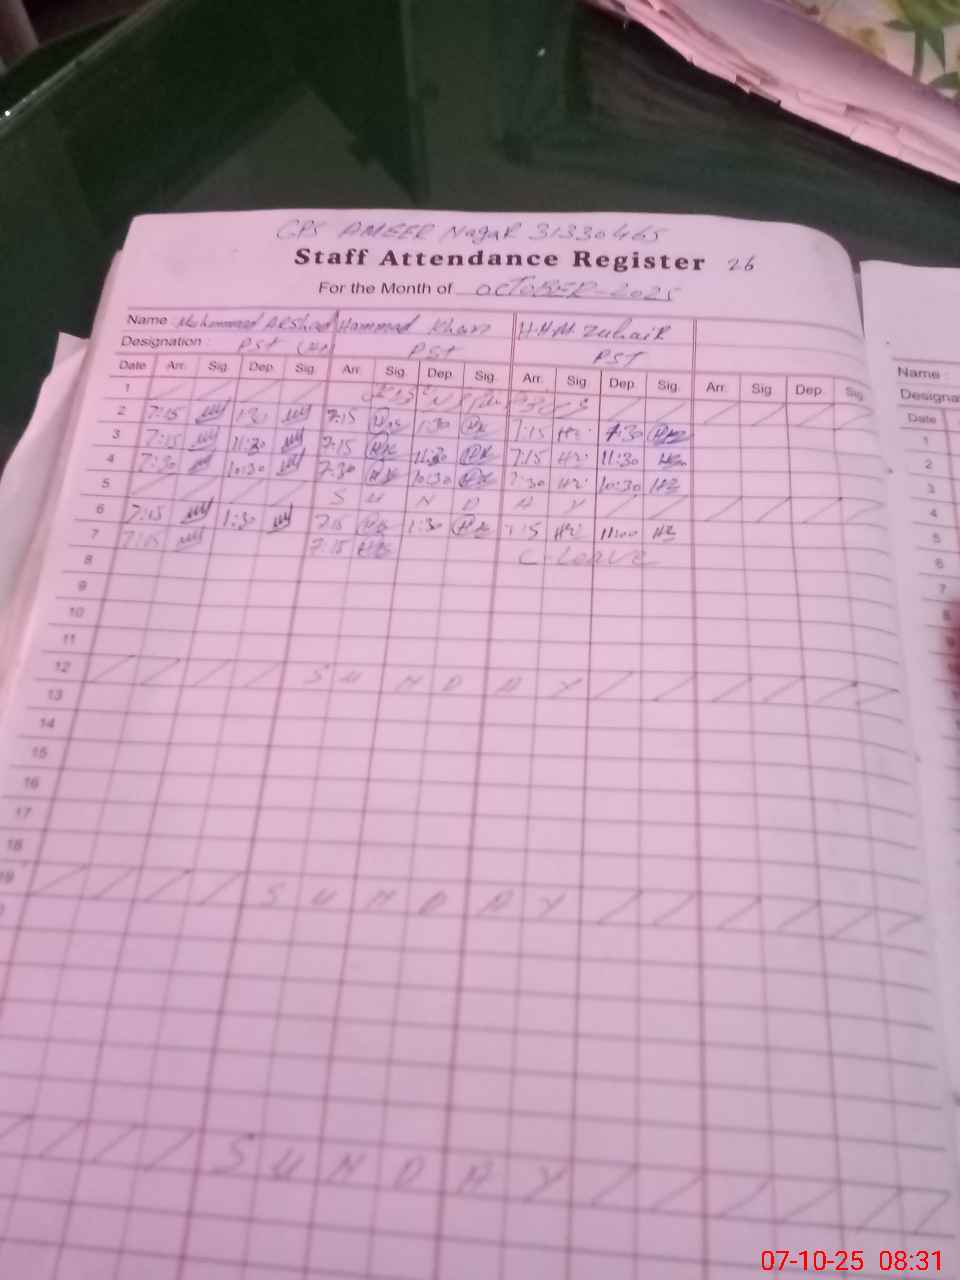 GPS AMEER NagaR 31330465
Staff Attendance Register 26
For the Month of OCTOBER-2025
Name: Muhammad ARShad Hammad Khan H.H.M. ZuhaiR
Designation: PSt PSt PST
Date Arr. Sig. Dep. Sig. Arr. Sig. Dep. Sig. Arr. Sig. Dep. Sig. Arr. Sig. Dep. Sig.
1
2 7:15 1:30 7:15 1:30 7:15 1:30
3 7:15 11:30 7:15 11:30 7:15 11:30
4 7:30 10:30 7:30 10:30 7:30 10:30
5 S U N D A Y
6 7:15 1:30 7:15 1:30 7:15 11:00
7 7:15 7:15 C-Leave
8
9
10
11
12 S U N D A Y
13
14
15
16
17
18
19 S U N D A Y
S U N D A Y
Name
Designa
Date
1
2
3
4
5
6
7
8
07-10-25 08:31